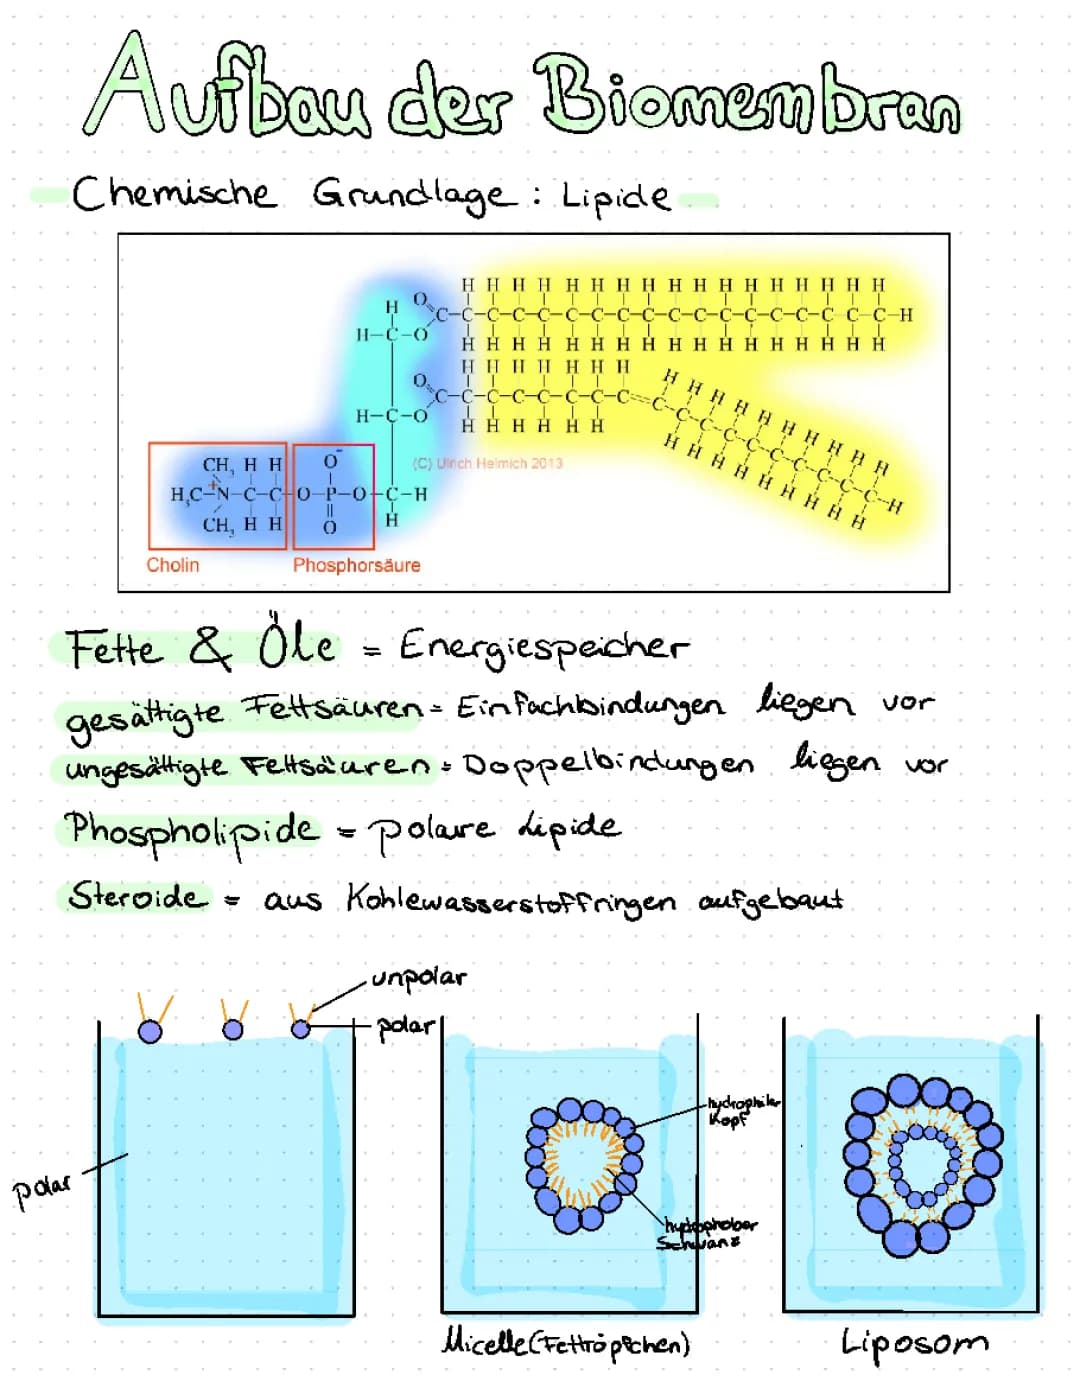 Aufbau der Biomembran
Chemische Grundlage: Lipide
H H H H H H H H H H H H H H H H H
H O C-C-C-C-C-C-C-C-C-C-C-C-C-C-C-C-C-C-H
H-C-O H H H H H H H H H H H H H H H H H
H H H H H H H
O C-C-C-C-C-C-C-C=C-C-C-C-C-C-C-C-C-C-H
H-C-O H H H H H H
H H H H H H H H H H
H H H H H H H H H
(C) Ulrich Helmich 2013
CH₃ H H O⁻
H₃C-N⁺-C-C-O-P-O-C-H
CH₃ H H O H
Cholin Phosphorsäure
Fette & Öle = Energiespeicher
gesättigte Fettsäuren = Einfachbindungen liegen vor
ungesättigte Fettsäuren = Doppelbindungen liegen vor
Phospholipide = polare Lipide
Steroide = aus Kohlewasserstoffringen aufgebaut
unpolar
polar
hydrophiler
Kopf
polar
hydrophober
Schwanz
Micelle (Fettröpfchen)
Liposom